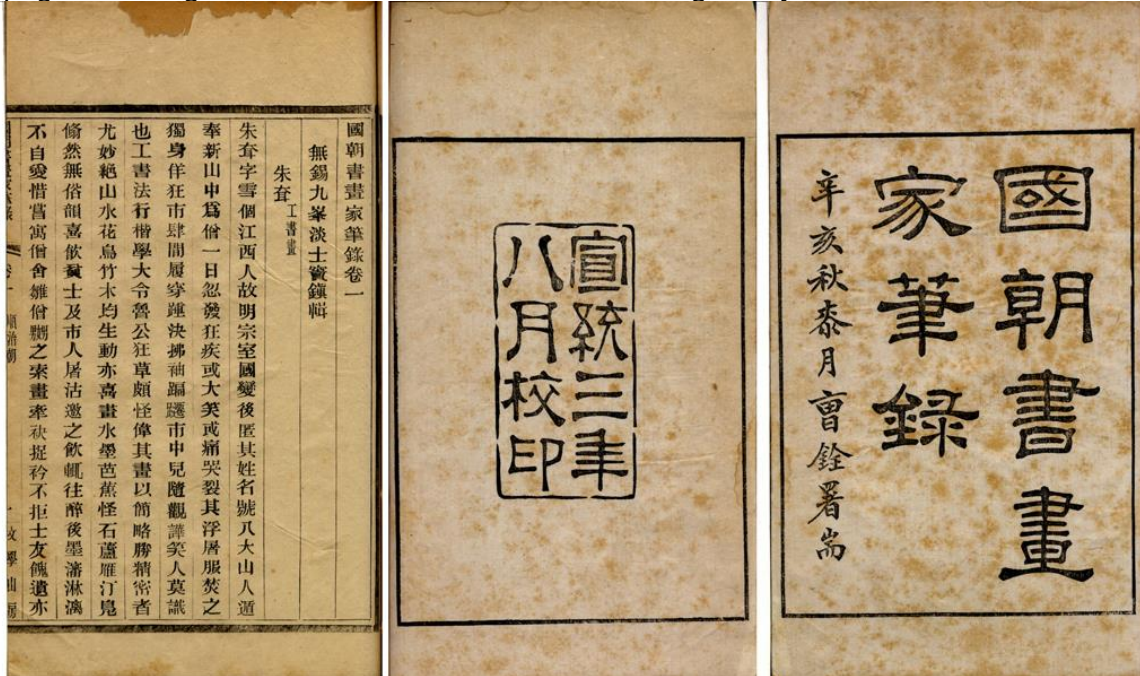 國朝書畫
家筆錄
辛亥秋泰月曺銓署耑
宣統三年
八月校印
國朝書畫家筆錄卷一
無錫九峯淡士竇鎮輯
朱耷 工書畫
朱耷字雪個江西人故明宗室國變後匿其姓名號八大山人遁
奉新山中爲僧一日忽發狂疾或大笑或痛哭裂其浮屠服焚之
獨身佯狂市肆間履穿踵決拂袖蹁躚市中兒隨觀譁笑人莫識
也工書法行楷學大令魯公狂草頗怪偉其畫以簡略勝精密者
尤妙絕山水花鳥竹木均生動亦喜畫水墨芭蕉怪石蘆雁汀鳧
翛然無俗韻喜飲貧士及市人屠沽邀之飲輒往醉後墨瀋淋漓
不自愛惜嘗寓僧舍雛僧嬲之索畫牽袂捉衿不拒士友餽遺亦
順治朝